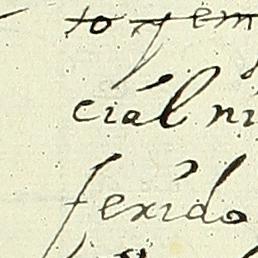 to y em
ciál ni
ferido